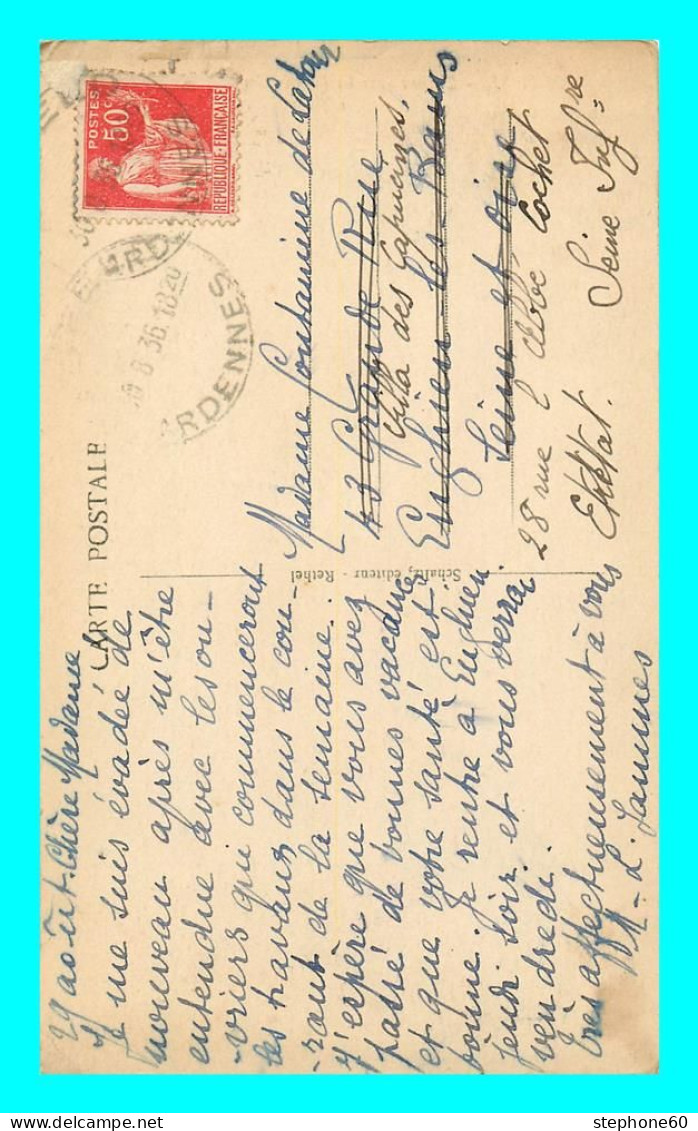 CARTE POSTALE
29 août. Chère Madame
Je me suis évadée de
nouveau après m'être
entendue avec les ou-
-vriers qui commenceront
les travaux dans le cou-
-rant de la semaine.
J'espère que vous avez
passé de bonnes vacances
et que votre santé est
bonne. Je rentre à Enghien
jeudi soir et vous verrai
vendredi.
Très affectueusement à vous
M-L. Lannes
Schaltz, éditeur - Rethel
Madame Fontanine de Latour
43 Grande Rue
Villa des Capucines,
Enghien les Bains
Seine et Oise
28 rue l'abbé Cochet
Etretat.
Seine Infre
POSTES
50c
REPUBLIQUE FRANCAISE
8 36 1820
ARDENNES
stephone60